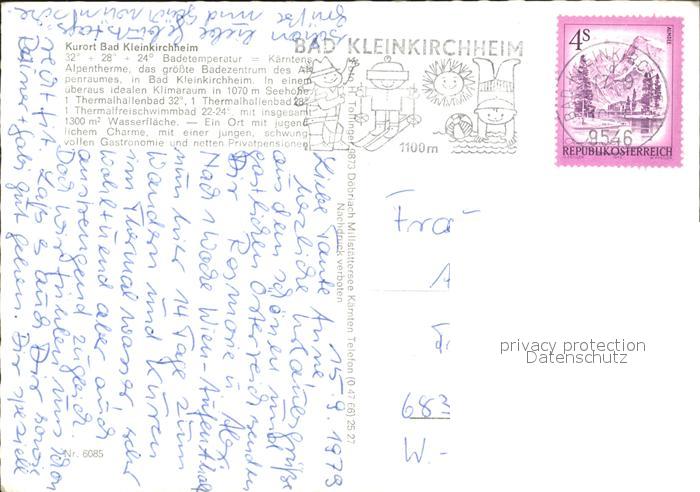 Kurort Bad Kleinkirchheim
32° + 28° + 24° Badetemperatur = Kärntens
Alpentherme, das größte Badezentrum des Al-
penraumes, in Bad Kleinkirchheim. In einem
überaus idealen Klimaraum in 1070 m Seehöhe
1 Thermalhallenbad 32°, 1 Thermalhallenbad 28°
1 Thermalfreischwimmbad 22-24°, mit insgesamt
1300 m² Wasserfläche. — Ein Ort mit jugend-
lichem Charme, mit einer jungen, schwung-
vollen Gastronomie und netten Privatpensionen
BAD KLEINKIRCHHEIM
1100m
4S
9546
REPUBLIK ÖSTERREICH
9873 Döbriach Millstättersee Kärnten Telefon (0 47 66) 25 27
Nachdruck verboten
15.9.1979
Liebe Tante Anne!
Herzliche Urlaubsgrüße
aus dem schönen und
gastlichen Österreich senden
Dir Rosmarie u. Alex.
Nach 1 Woche Wien-Aufenthalt
nun hier 14 Tage zum
Wandern und Kuren
im Thermalwasser sehr
wohltuend aber auch
anstrengend zugleich.
Doch wir fühlen uns schon
recht fit. Laß es auch Dir sowie
Rainer + Gabi gut gehen. Dir speziell
schon liebe Geburtstags-
grüße und
Nr. 6085
Frau
A
683
W.-
privacy protection
Datenschutz